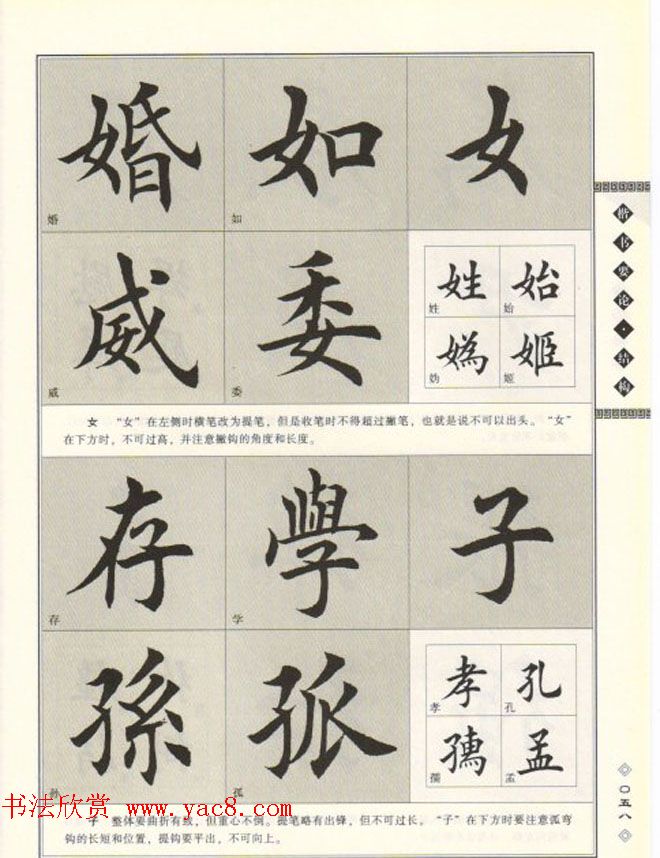 婚 如 女
婚 如
威 委
威 委
姓 始
姓 始
媯 姬
妫 姬
女 “女”在左侧时横笔改为提笔，但是收笔时不得超过撇笔，也就是说不可以出头。“女”
在下方时，不可过高，并注意撇钩的角度和长度。
存 學 子
存 学
孫 孤
孤
孝 孔
孝 孔
孺 孟
孺 孟
子 整体要曲折有致，但重心不倒。提笔略有出锋，但不可过长。“子”在下方时要注意弧弯
钩的长短和位置，提钩要平出，不可向上。
楷书要论·结构
〇五八
书法欣赏 www.yac8.com